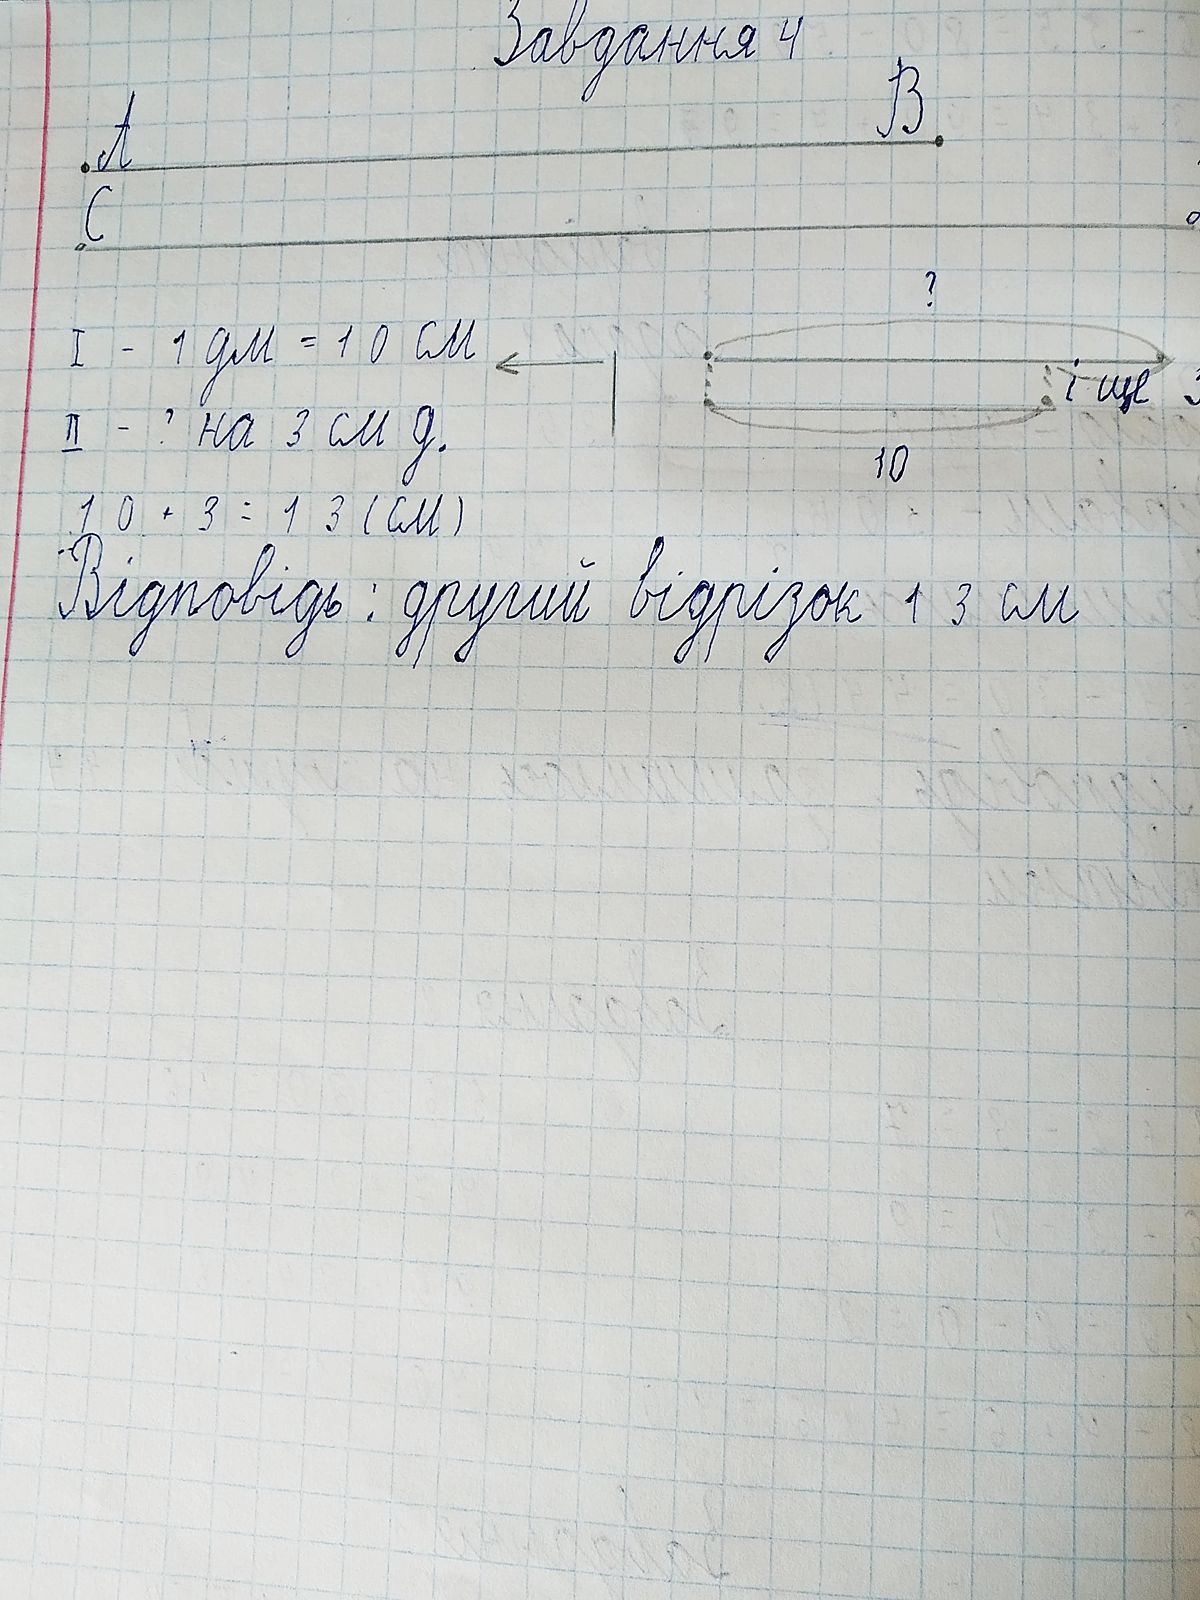 Завдання 4
А В
С
?
I - 1 дм = 10 см
і ще 3
II - ? на 3 см д.
10
10 + 3 = 13 (см)
Відповідь: другий відрізок 13 см